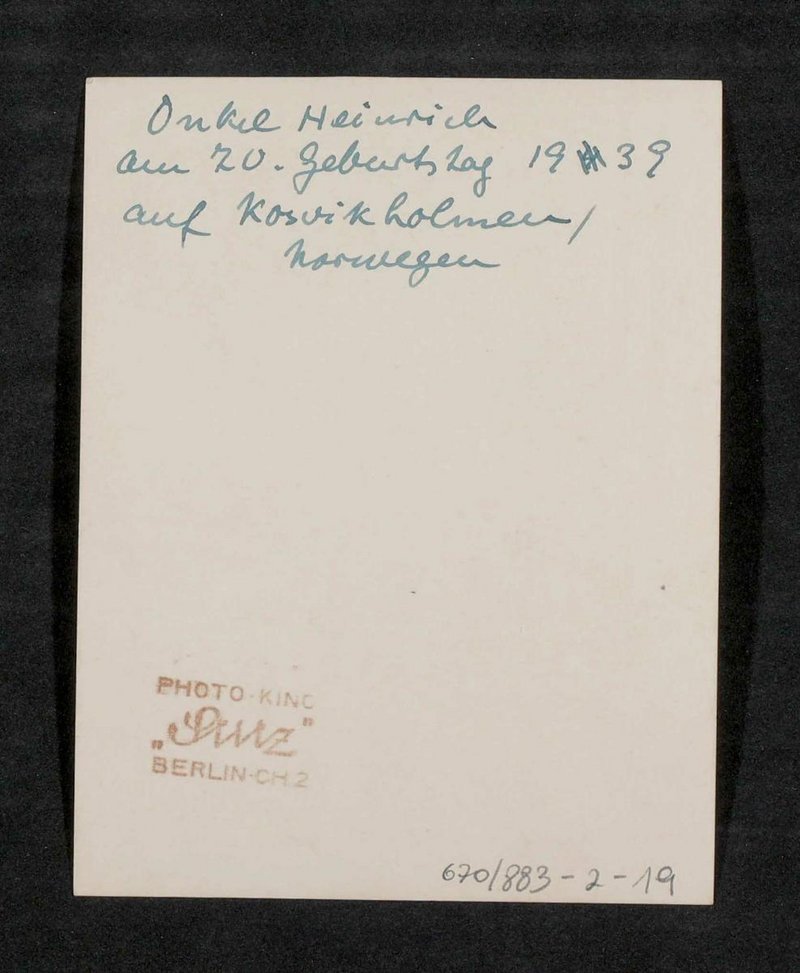 Onkel Heinrich
am 70. Geburtstag 19 39
auf Kosvikholmen/
Norwegen
PHOTO-KINO
BERLIN-CH 2
670/883-2-19